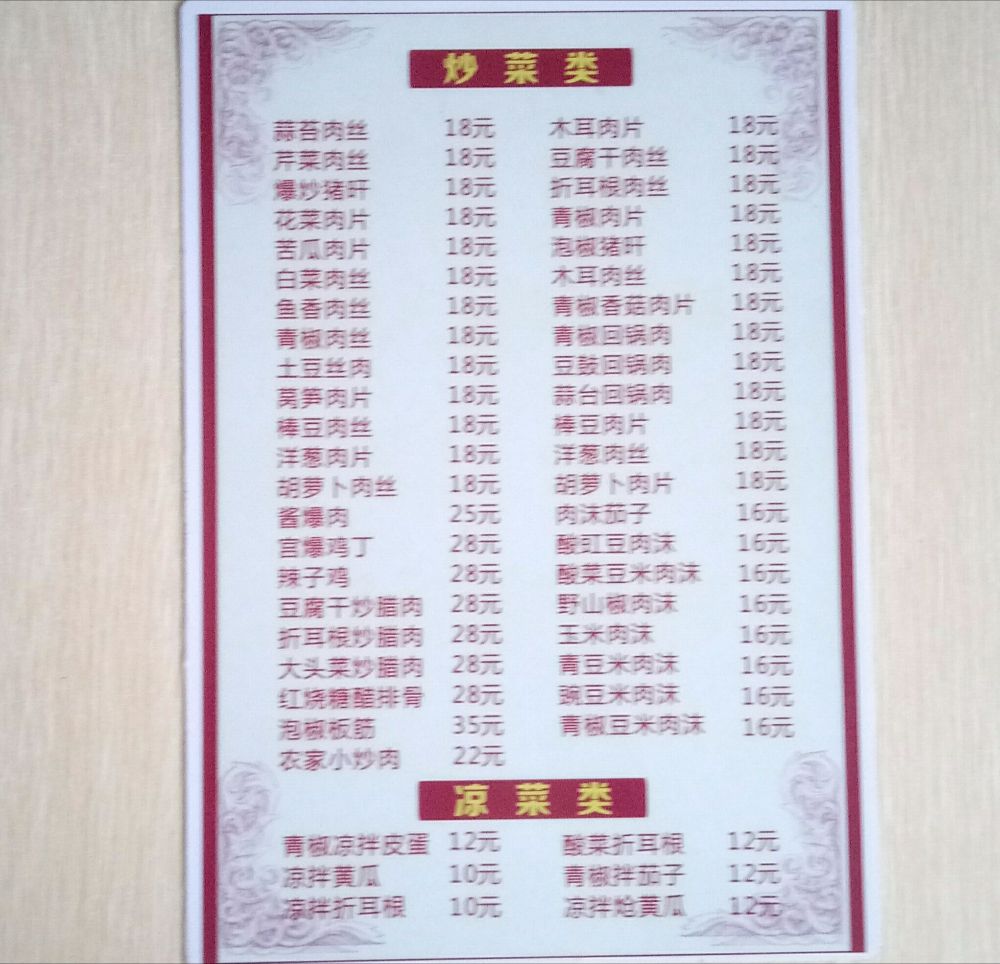 炒菜类
蒜苔肉丝 18元 木耳肉片 18元
芹菜肉丝 18元 豆腐干肉丝 18元
爆炒猪肝 18元 折耳根肉丝 18元
花菜肉片 18元 青椒肉片 18元
苦瓜肉片 18元 泡椒猪肝 18元
白菜肉丝 18元 木耳肉丝 18元
鱼香肉丝 18元 青椒香菇肉片 18元
青椒肉丝 18元 青椒回锅肉 18元
土豆丝肉 18元 豆鼓回锅肉 18元
莴笋肉片 18元 蒜台回锅肉 18元
棒豆肉丝 18元 棒豆肉片 18元
洋葱肉片 18元 洋葱肉丝 18元
胡萝卜肉丝 18元 胡萝卜肉片 18元
酱爆肉 25元 肉沫茄子 16元
宫爆鸡丁 28元 酸豇豆肉沫 16元
辣子鸡 28元 酸菜豆米肉沫 16元
豆腐干炒腊肉 28元 野山椒肉沫 16元
折耳根炒腊肉 28元 玉米肉沫 16元
大头菜炒腊肉 28元 青豆米肉沫 16元
红烧糖醋排骨 28元 豌豆米肉沫 16元
泡椒板筋 35元 青椒豆米肉沫 16元
农家小炒肉 22元
凉菜类
青椒凉拌皮蛋 12元 酸菜折耳根 12元
凉拌黄瓜 10元 青椒拌茄子 12元
凉拌折耳根 10元 凉拌炝黄瓜 12元